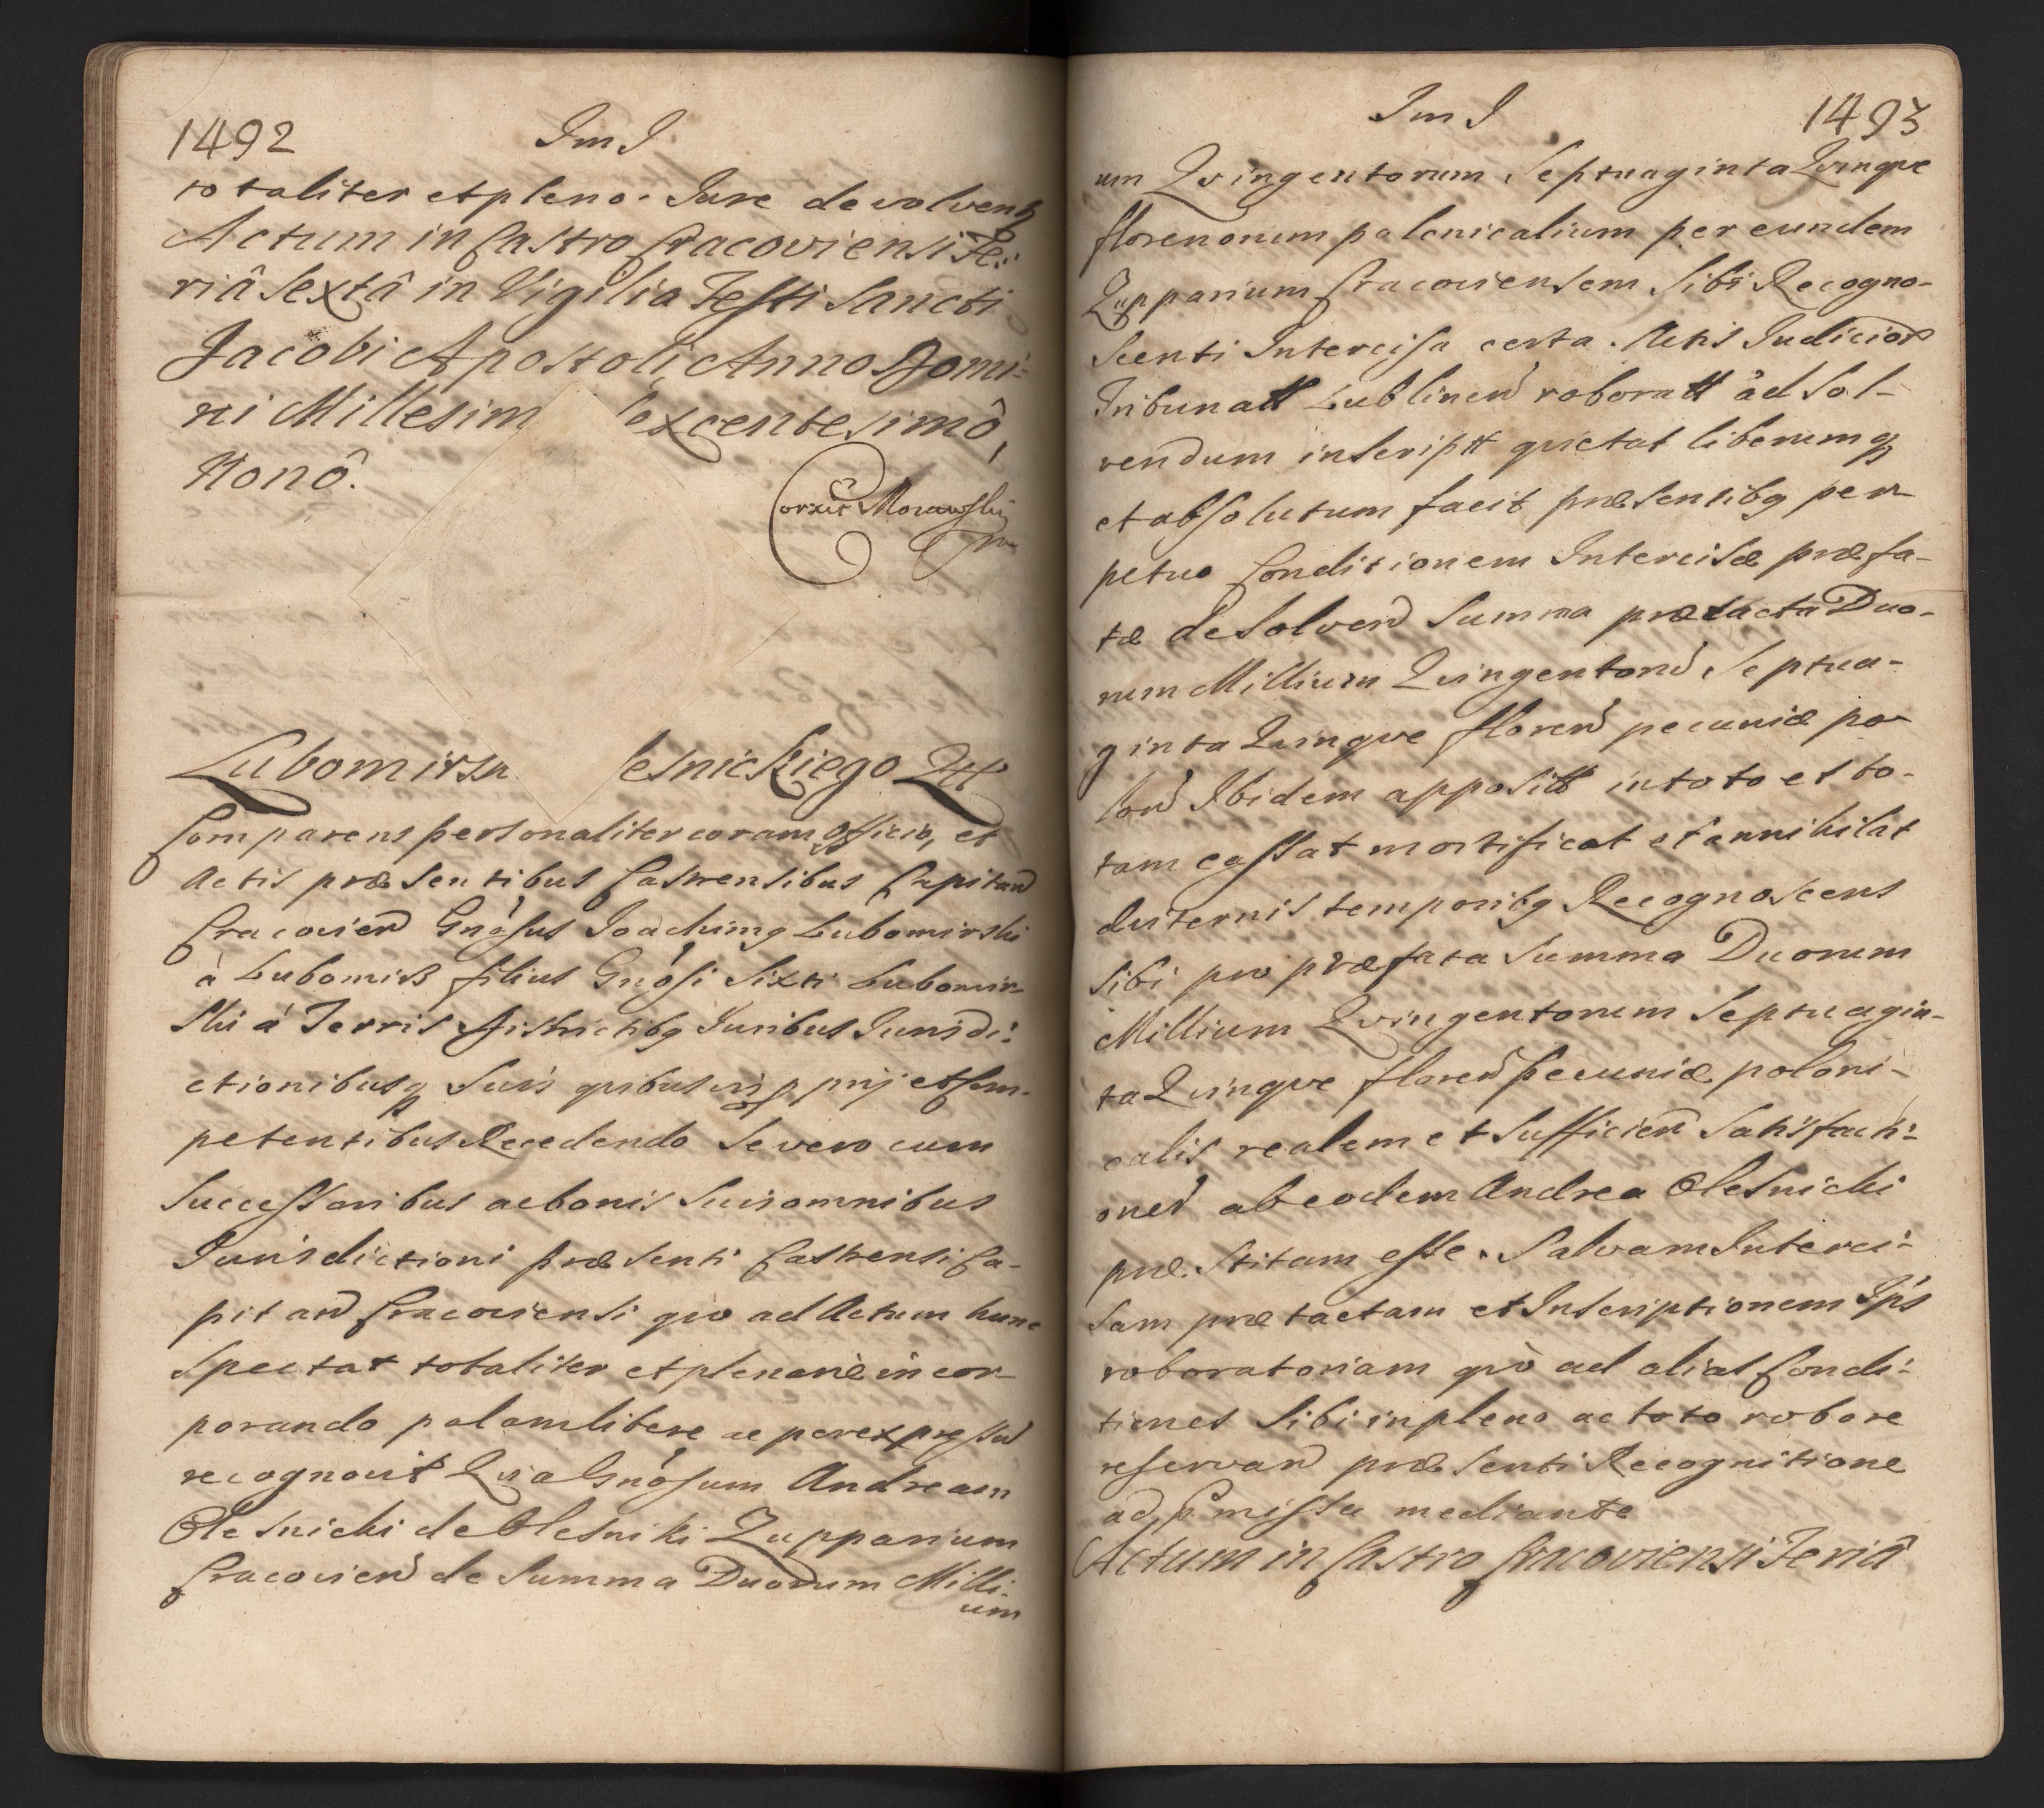 1492
Im I
totaliter et pleno Iure devolvend
Actum in Castro Cracoviensi Fe:
riâ Sextâ in Vigilia Festi Sancti
Jacobi Apostoli Anno Domi:
ni Millesim Sexcentesimô
Nonô.
Corxit Morawski
Lubomirsk lesnickiego Qtt
Comparens personaliter coram Officio, et
Actis præsentibus Castrensibus Capitan
Cracovien Gnosus Joachimq Lubomirski
à Lubomirz filius Gnosi Sixti Lubomir-
ski á Terris Districtibq Iuribus Iurisdi:
ctionibusq Suis quibusvis pprijs et Com-
petentibus Recedendo Se vero cum
Successoribus ac bonis Suis omnibus
Iurisdictioni præsenti Castrensi Ca-
pitan Cracoviensi quo ad Actum hunc
Spectat totaliter et plenariè incor-
porando palam libere ac per expressu
recognovit Quia Gnosum Andream
Olesnicki de Olesniki Zupparium
Cracovien de Summa Duorum Milli-
um
Im I
1493
um Qvingentorum Septuaginta Qvinqve
florenorum polonicalium per eundem
Zupparium Cracoviensem Sibi Recogno-
scenti Intercisa certa Actis Iudicior
Tribunatt Lublinen roboratt ad Sol-
vendum inscriptt quietat liberumq
et absolutum facit præsentibq per-
petuo Conditionem Intercisæ præfa-
tæ de Solven Summa prætacta Duo-
rum Millium Qvingentoru Septua-
ginta Qvinqve floren pecuniæ po-
lon Ibidem appositt in toto et to-
tam cassat mortificat et annihilat
æviternis temporibq Recognoscens
Sibi pro præfata Summa Duorum
Millium Qvingentorum Septuagin-
ta Qvinqve floren Pecuniæ poloni-
calis realem et Sufficien Satisfacti:
oned ab eodem Andrea Olesnicki
præstitam esse. Salvam Interci:
sam prætactam et Inscriptionem Ips
roboratoriam quò ad alias Condi:
tiones Sibi in pleno ac toto robore
reservan præsenti Recognitione
ad p̄missa mediante
Actum in Castro Cracoviensi Feriâ